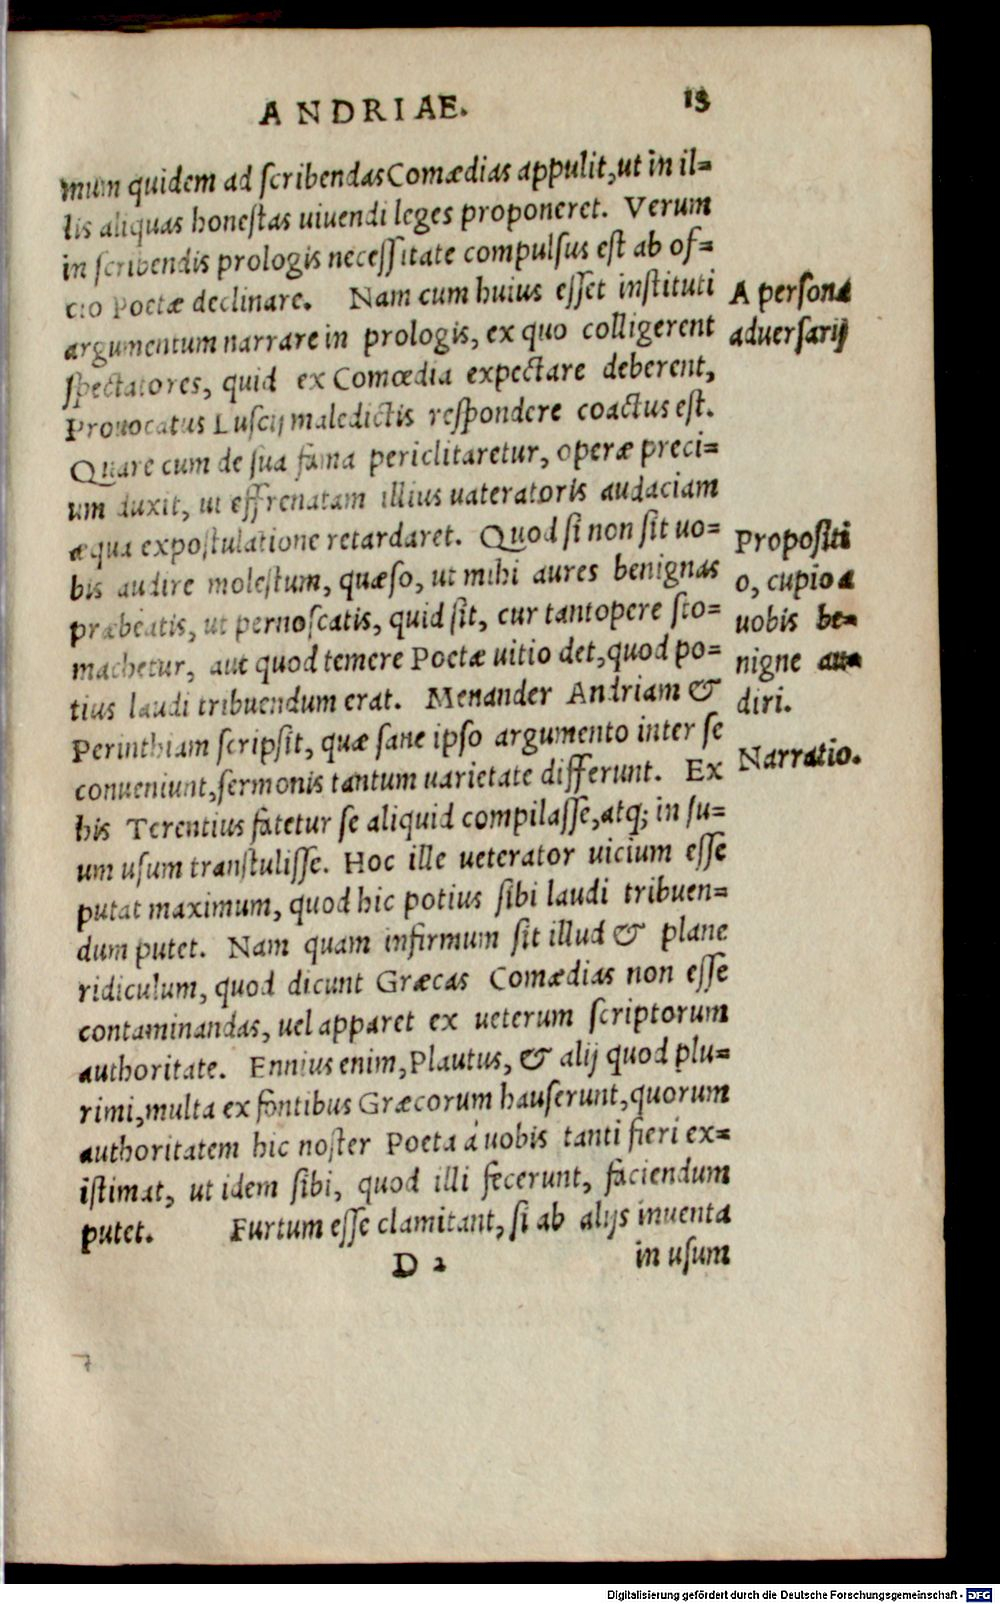 ANDRIAE. 13
mum quidem ad ſcribendas Comædias appulit, ut in il=
lis aliquas honeſtas uiuendi leges proponeret. Verum
in ſcribendis prologis neceſſitate compulſus eſt ab of=
cio Poetæ declinare. Nam cum huius eſſet inſtituti
argumentum narrare in prologis, ex quo colligerent
ſpectatores, quid ex Comœdia expectare deberent,
Prouocatus Luſcij maledictis reſpondere coactus eſt.
Quare cum de ſua fama periclitaretur, operæ preci=
um duxit, ut effrenatam illius uateratoris audaciam
æqua expoſtulatione retardaret. Quod ſi non ſit uo=
bis audire moleſtum, quæſo, ut mihi aures benignas
præbeatis, ut pernoſcatis, quid ſit, cur tantopere ſto=
machetur, aut quod temere Poetæ uitio det, quod po=
tius laudi tribuendum erat. Menander Andriam &
Perinthiam ſcripſit, quæ ſane ipſo argumento inter ſe
conueniunt, ſermonis tantum uarietate differunt. Ex
his Terentius fatetur ſe aliquid compilaſſe, atq; in ſu=
um uſum tranſtuliſſe. Hoc ille ueterator uicium eſſe
putat maximum, quod hic potius ſibi laudi tribuen=
dum putet. Nam quam infirmum ſit illud & plane
ridiculum, quod dicunt Græcas Comædias non eſſe
contaminandas, uel apparet ex ueterum ſcriptorum
authoritate. Ennius enim, Plautus, & alij quod plu=
rimi, multa ex fontibus Græcorum hauſerunt, quorum
authoritatem hic noſter Poeta á uobis tanti fieri ex=
iſtimat, ut idem ſibi, quod illi fecerunt, faciendum
putet. Furtum eſſe clamitant, ſi ab alijs inuenta
D 2 in uſum
A perſona
aduerſarij
Propoſiti
o, cupio a
uobis be=
nigne au=
diri.
Narratio.
Digitalisierung gefördert durch die Deutsche Forschungsgemeinschaft - DFG